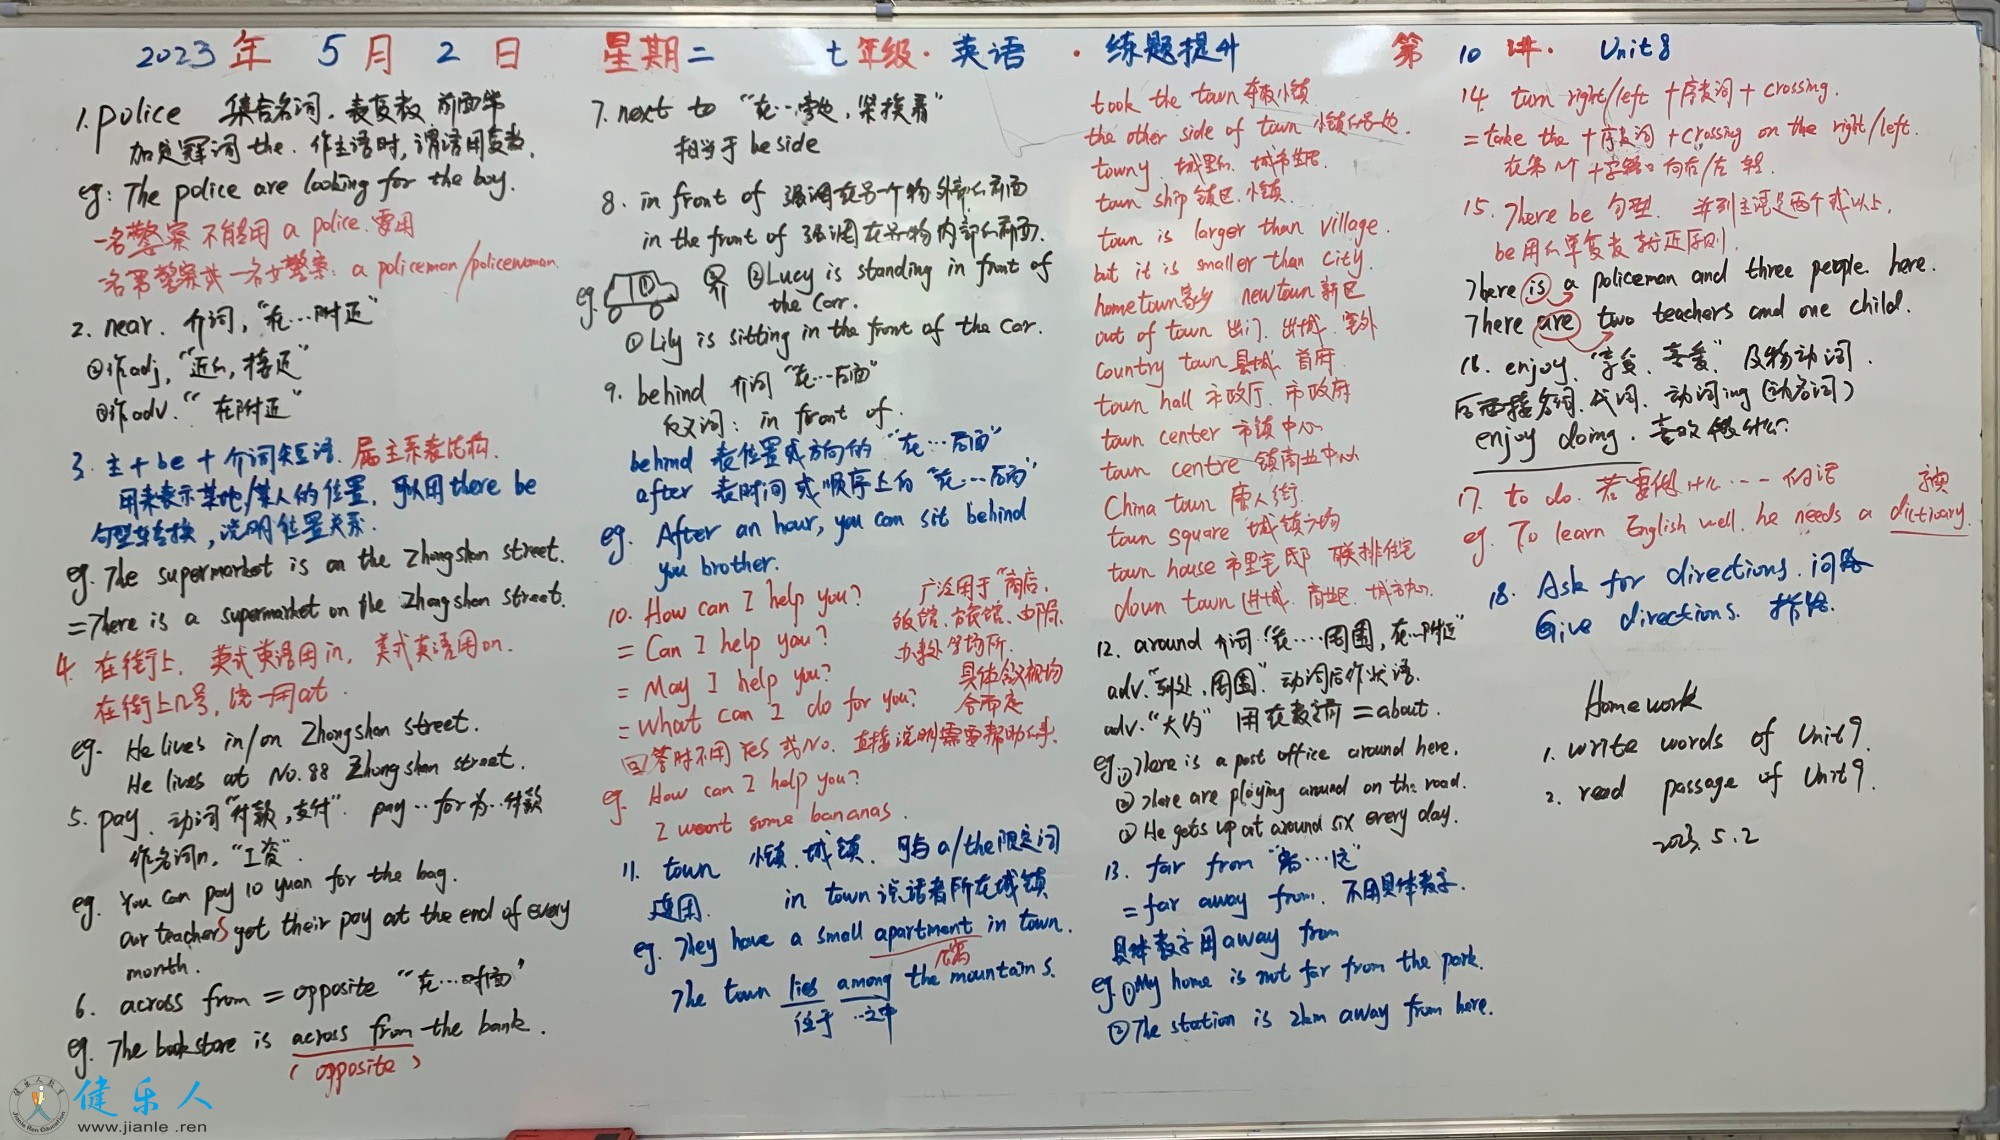 2023年 5月 2日 星期二 七年级·英语·练题提升 第10讲· Unit 8
1. police 集合名词，表复数，前面常
加定冠词 the. 作主语时，谓语用复数.
eg: The police are looking for the boy.
一名警察 不能用 a police. 要用
一名男警察或一名女警察: a policeman/policewoman.
2. near. 介词，"在…附近"
②作adj，"近的，接近"
③作adv. "在附近"
3. 主+be+介词短语. 属主系表结构.
用来表示某地/某人的位置，可以用there be
句型转换，说明位置关系.
eg. The supermarket is on the Zhongshan street.
=There is a supermarket on the Zhongshan street.
4. 在街上，英式英语用in，美式英语用on.
在街上几号，统一用at.
eg. He lives in/on Zhongshan street.
He lives at No.88 Zhongshan street.
5. pay. 动词"付款,支付". pay…for 为…付款
作名词n，"工资".
eg. You can pay 10 yuan for the bag.
Our teachers get their pay at the end of every
month.
6. across from = opposite "在…对面"
eg. The bookstore is across from the bank.
( opposite )
7. next to "在…旁边，紧挨着"
相当于 beside
8. in front of 强调在另一个物外部的前面
in the front of 强调在另一物内部的前面.
eg. ① ② ②Lucy is standing in front of
the car.
①Lily is sitting in the front of the car.
9. behind 介词 "在…后面"
反义词: in front of.
behind 表位置或方向的 "在…后面"
after 表时间或顺序上的 "在…后面"
eg. After an hour, you can sit behind
you brother.
10. How can I help you? 广泛用于"商店,
= Can I help you? 饭馆、旅馆、邮局、
办事处等场所.
= May I help you? 具体含义视场
= What can I do for you? 合而定
回答时不用 Yes 或 No. 直接说明需要帮助的事.
eg. How can I help you?
I want some bananas.
11. town 小镇、城镇. 可与a/the限定词
连用. in town 说话者所在城镇
eg. They have a small apartment in town.
公寓
The town lies among the mountains.
位于 …之中
took the town 夺取小镇
the other side of town 小镇的另一边.
towny. 城里的. 城市居民.
town ship 镇区. 小镇.
town is larger than village.
but it is smaller than city.
hometown 家乡 newtown 新区
out of town 出门. 出城. 室外
country town 县城. 首府.
town hall 市政厅. 市政府
town center 市镇中心
town centre 镇商业中心
China town 唐人街.
town square 城镇广场
town house 市里宅邸 联排住宅
down town 进城. 商业区. 城市中心.
12. around 介词 "在……周围, 在…附近"
adv. "到处, 周围". 动词后作状语.
adv. "大约" 用在数字前 = about.
eg. ①There is a post office around here.
② There are playing around on the road.
③ He gets up at around six every day.
13. far from "离…远"
= far away from. 不用具体数字.
具体数字用 away from
eg. ①My home is not far from the park.
②The station is 2km away from here.
14. turn right/left +序数词+ crossing.
= take the +序数词+crossing on the right/left.
在第几个十字路口向右/左转.
15. There be 句型. 并列主语是两个或以上.
be 用的单复数就近原则.
There is a policeman and three people here.
There are two teachers and one child.
16. enjoy. "享受, 喜爱" 及物动词.
后面接名词、代词、动词ing (动名词)
enjoy doing. 喜欢做什么.
17. to do. 若要做什么……的话 字典
eg. To learn English well. he needs a dictionary.
18. Ask for directions. 问路
Give directions. 指路.
Homework
1. write words of Unit 9.
2. read passage of Unit 9.
2023. 5. 2
健乐人
www.jianle .ren